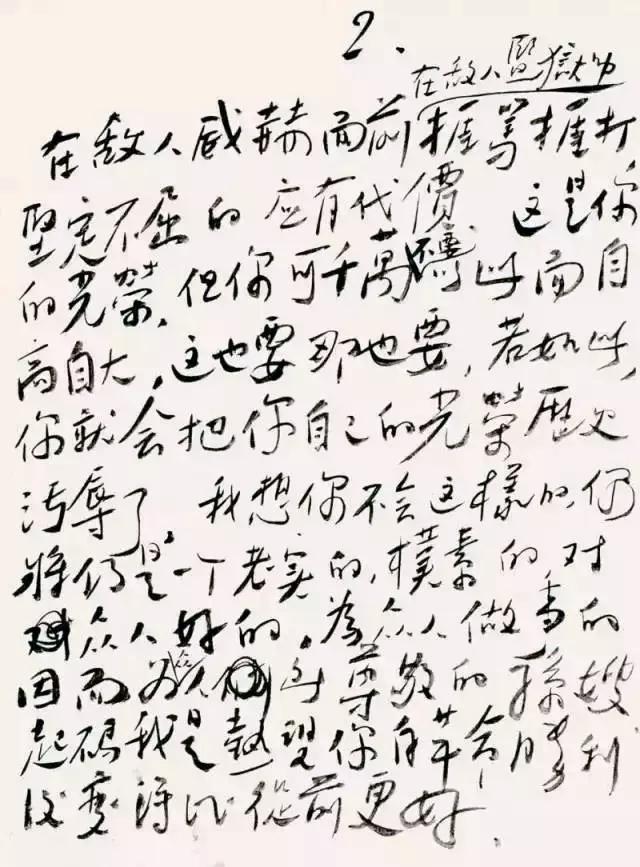 2.
在敌人監獄中
在敌人威赫面前捱骂捱打
堅定不屈的 应有代價 这是你
的光荣,但你可千萬不要為此而自
高自大,这也要那也要,若如此,
你就会把你自己的光荣歷史
污辱了。我想你不会这樣的,你
将仍是一个老实的,樸素的对
众人好的,為众人做事的
因而為众人所尊敬的孫嫂
起码我是熱望你自革命勝利
後变得比從前更好.